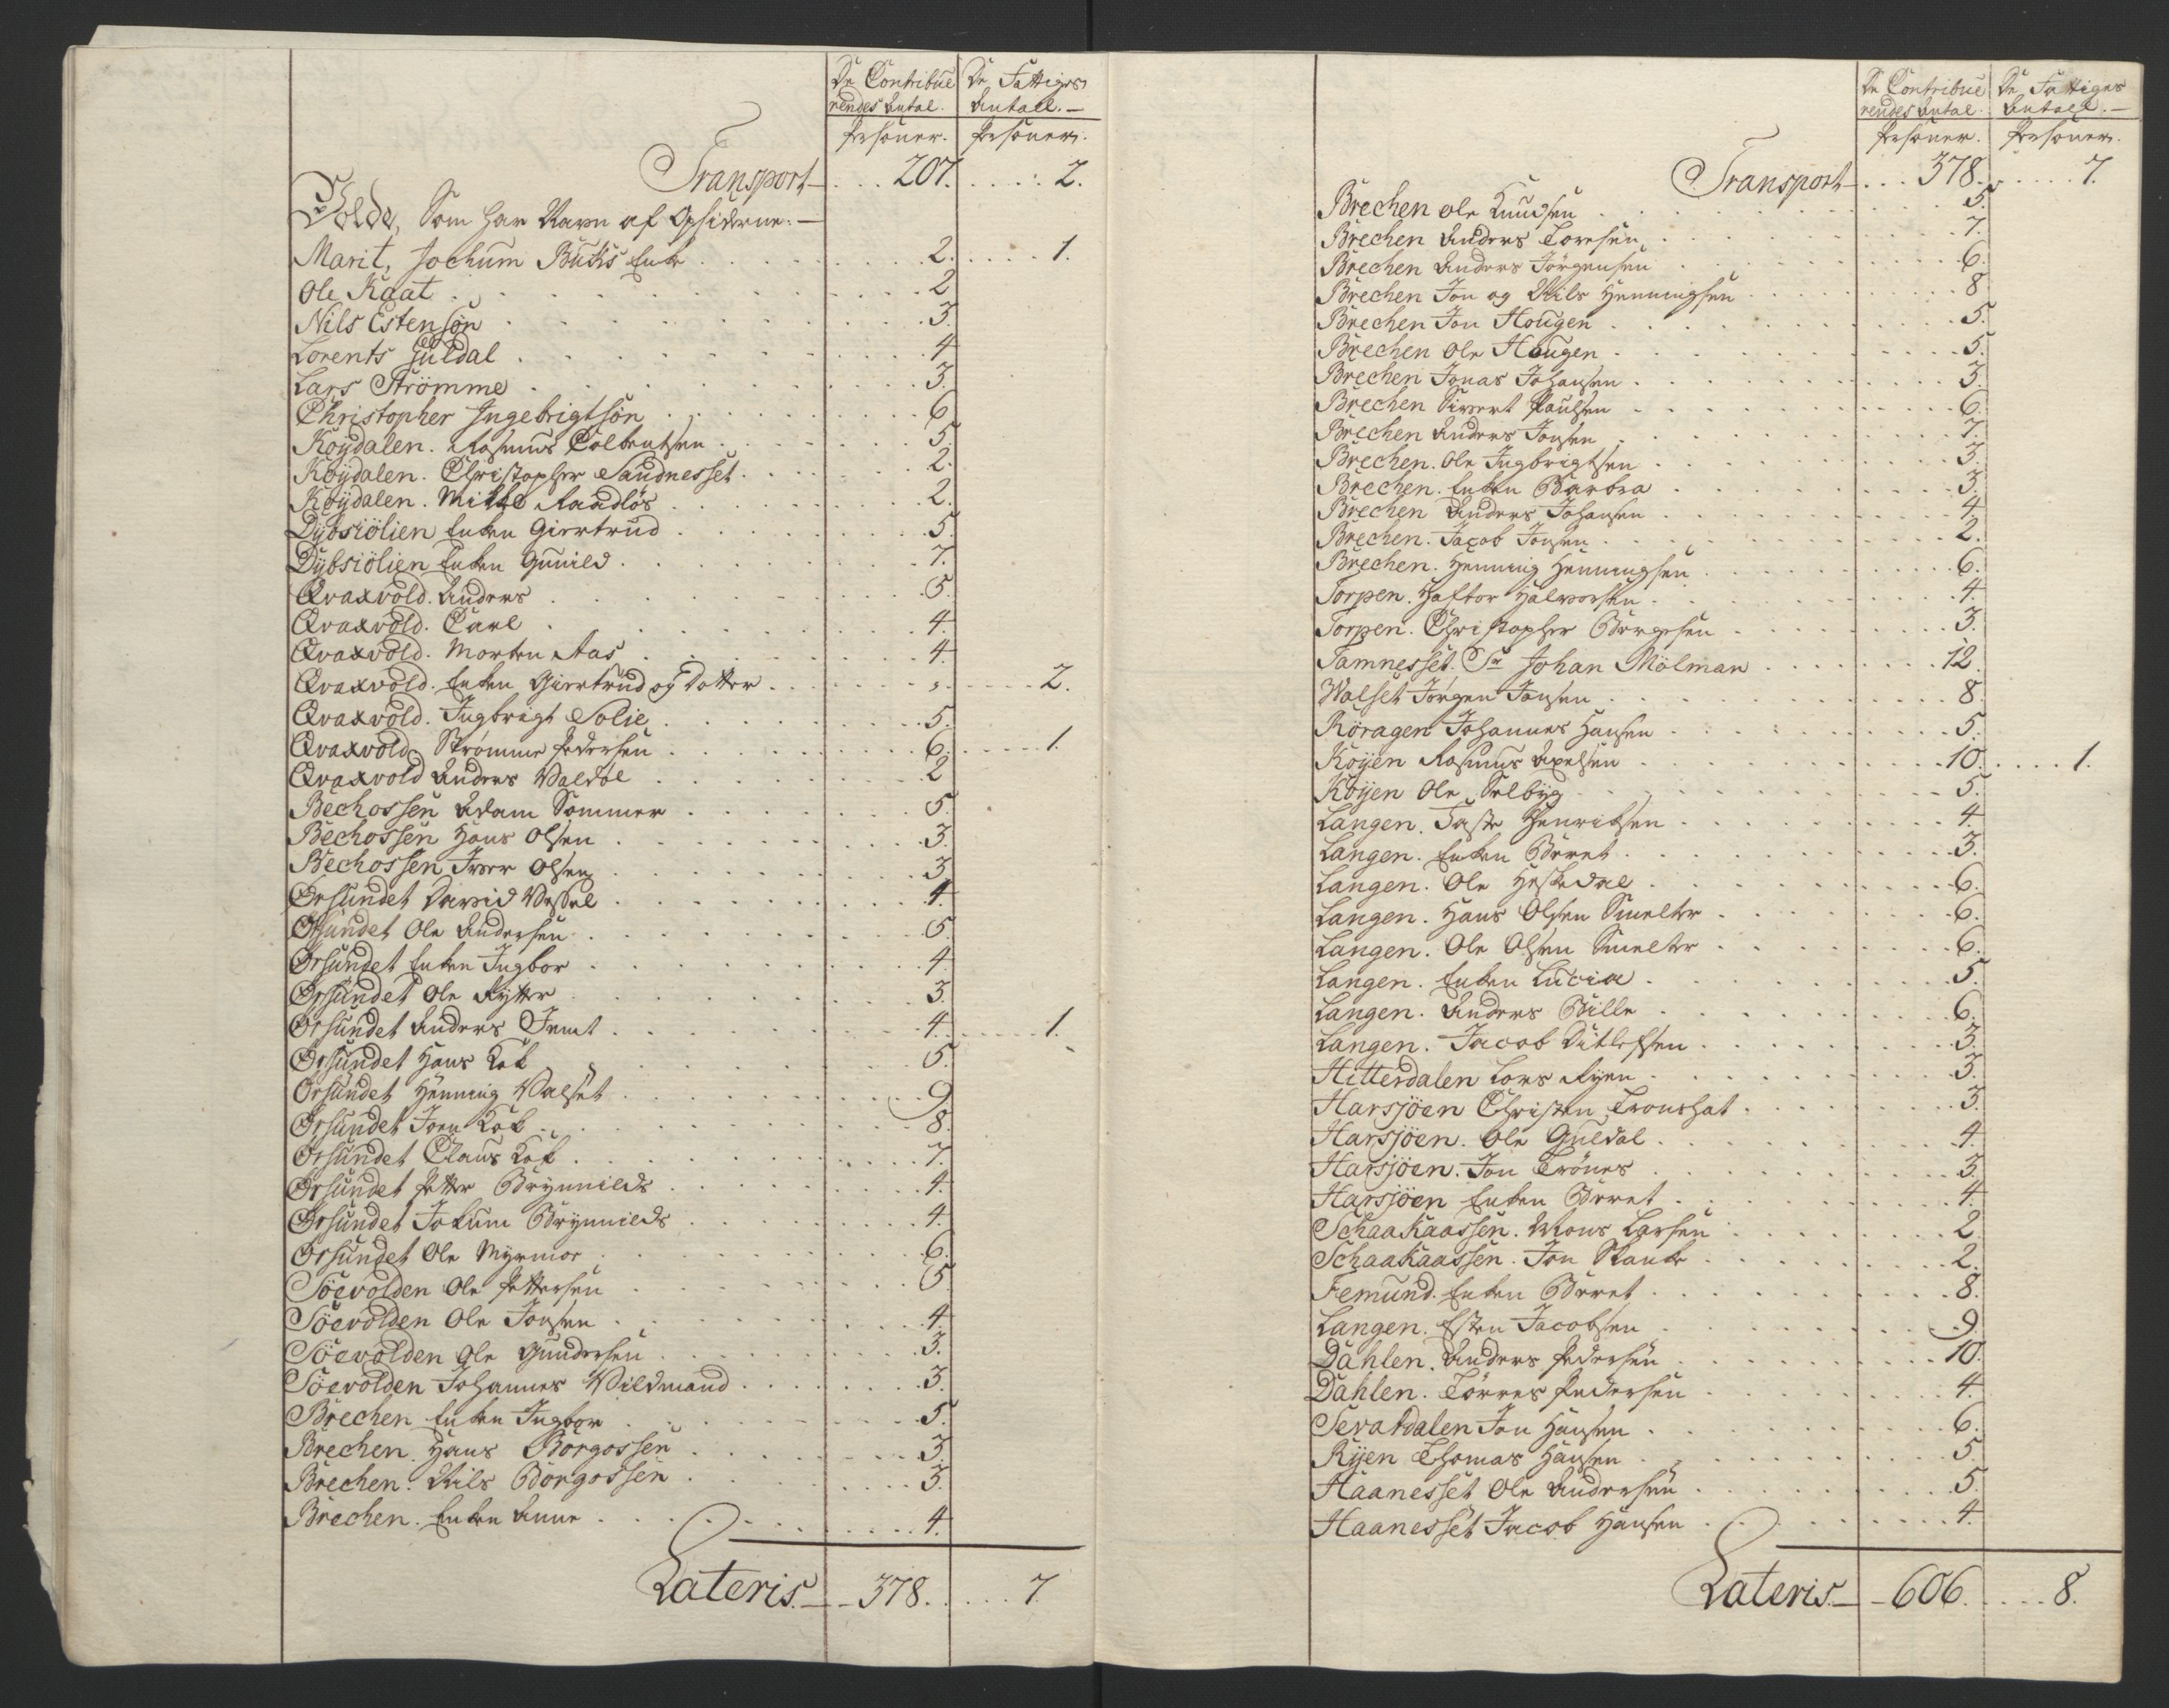 De Contribue De Fattiges
rendes Antal. Antall.—
Persohner. Persohner.
Transport 207. 2.
Volde, Som har Navn af Opsiderne.—
Marit, Jochum Buchs Enke 2. 1.
Ole Kaat 2
Nils Estensön 3.
Lorents Guldal 4
Lars Strömme 3.
Christopher Ingebrigtsön 6
Köydalen. Rasmus Colbentsen 5.
Köydalen. Christopher Sandnesset. 2.
Köydalen. Mikkel Raadlös 2.
Dybsiölien Enken Giertrud 5.
Dybsiölien Enken Gunild. 7.
Qvaxvold. Anders 5.
Qvaxvold. Carl 4.
Qvaxvold. Morten Aas 4.
Qvaxvold. Enken Giertrud og Datter. 2.
Qvaxvold. Ingbrigt Solie. 5.
Qvaxvold Strömme Pedersen 6. 1.
Qvaxvold Anders Valdal 2
Bechossen Adam Sommer 5.
Bechossen Hans Olsen 3.
Bechossen Iver Olsen 3
Örsundet David Wessel 4.
Örsundet Ole Andersen 5.
Örsundet Enken Ingbor 4.
Örsundet Ole Rytter 3.
Örsundet Anders Jemt 4. 1.
Örsundet Hans Kok 5.
Örsundet Henning Valset 9.
Örsundet Joen Kok 8.
Örsundet Claus Kok 7.
Örsundet Petter Brynnilds 4.
Örsundet Jokum Brynnilds 4.
Örsundet Ole Myrmoe 6.
Söevolden Ole Pettersen 5.
Söevolden Ole Jonsen 4.
Söevolden Ole Gundersen 3.
Söevolden Johannes Vildmand 3.
Brechen Enken Ingbor 5.
Brechen. Hans Borgossen 3.
Brechen. Nils Borgossen 3.
Brechen. Enken Anne 4.
Lateris.— 378. 7.
De Contribue De Fattiges
rendes Antal. Antall.—
Persohner. Persohner.
Transport 378. 7.
Brechen Ole Knudsen 5.
Brechen Anders Toresen 7.
Brechen Anders Jörgensen 6.
Brechen Jon og Nils Henningsen 8
Brechen Jon Hougen 5.
Brechen Ole Hougen 5.
Brechen Jonas Johansen 3.
Brechen Sivert Paulsen 6.
Brechen Anders Jonsen 7.
Brechen. Ole Ingbrigtsen 3.
Brechen. Enken Barbra 3.
Brechen Anders Johansen 4.
Brechen. Jacob Jonsen 2.
Brechen. Henning Henningsen 6.
Torpen. Haftor Halvorsen 4.
Torpen. Christopher Börgesen 3.
Tamnesset. Sr. Johan Mölman 12.
Walset Jörgen Jonsen 8.
Röragen Johannes Hansen 5.
Köyen Rasmus Axelsen 10. 1.
Köyen Ole Selbyg 5.
Langen. Faste Henriksen 4.
Langen. Enken Berret 3.
Langen. Ole Heskedal 6.
Langen. Hans Olsen Smelter 6.
Langen. Ole Olsen Smelter 6.
Langen. Enken Lucia 5.
Langen. Anders Bille 6.
Langen. Jacob Ditlefsen 3.
Hitterdalen Lars Ryen 3.
Harsjöen Christen Tronshat. 3.
Harsjöen. Ole Guldal 4.
Harsjöen. Jon Trönes 3.
Harsjöen Enken Berret 4.
Schaakaassen. Mons Larsen 2.
Schaakaassen. Jon Skanke 2.
Femund. Enken Berret 8.
Langen. Esten Jacobsen 9.
Dahlen. Anders Pedersen 10.
Dahlen. Törres Pedersen 4.
Sevatdalen Jon Hansen 6.
Ryen Thomas Hansen 5
Haanesset Ole Andersen 5.
Haanesset Jacob Hansen 4.
Lateris.— 606. 8.